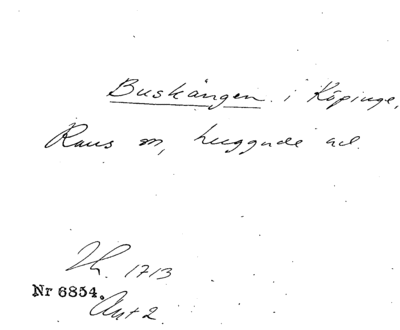 Buskängen i Köpinge,
Raus sn, huggnde ad.
Th. 1713
Nr 6854.
Ant 2